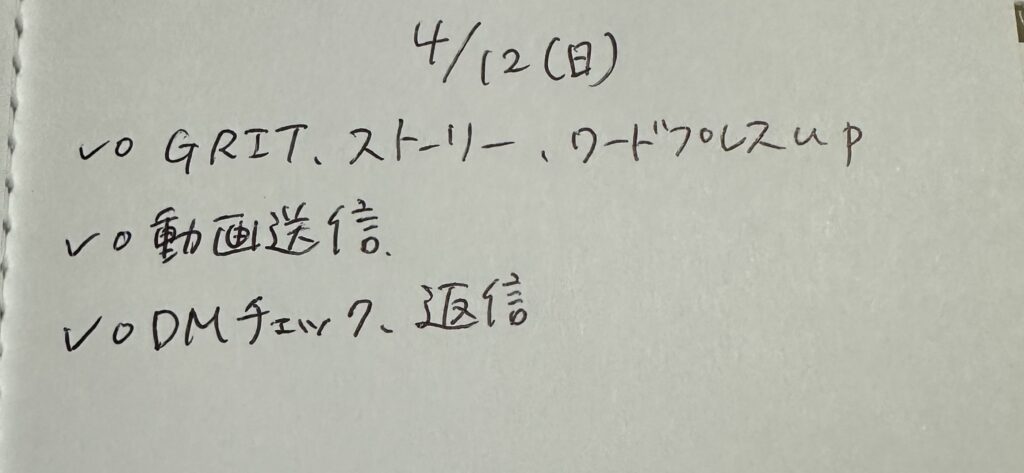 4/12(日)
✓○ GRIT、ストーリー、ワードプレスup
✓○ 動画送信.
✓○ DMチェック、返信